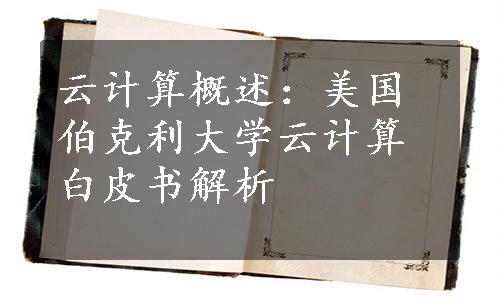 云计算概述：美国
伯克利大学云计算
白皮书解析